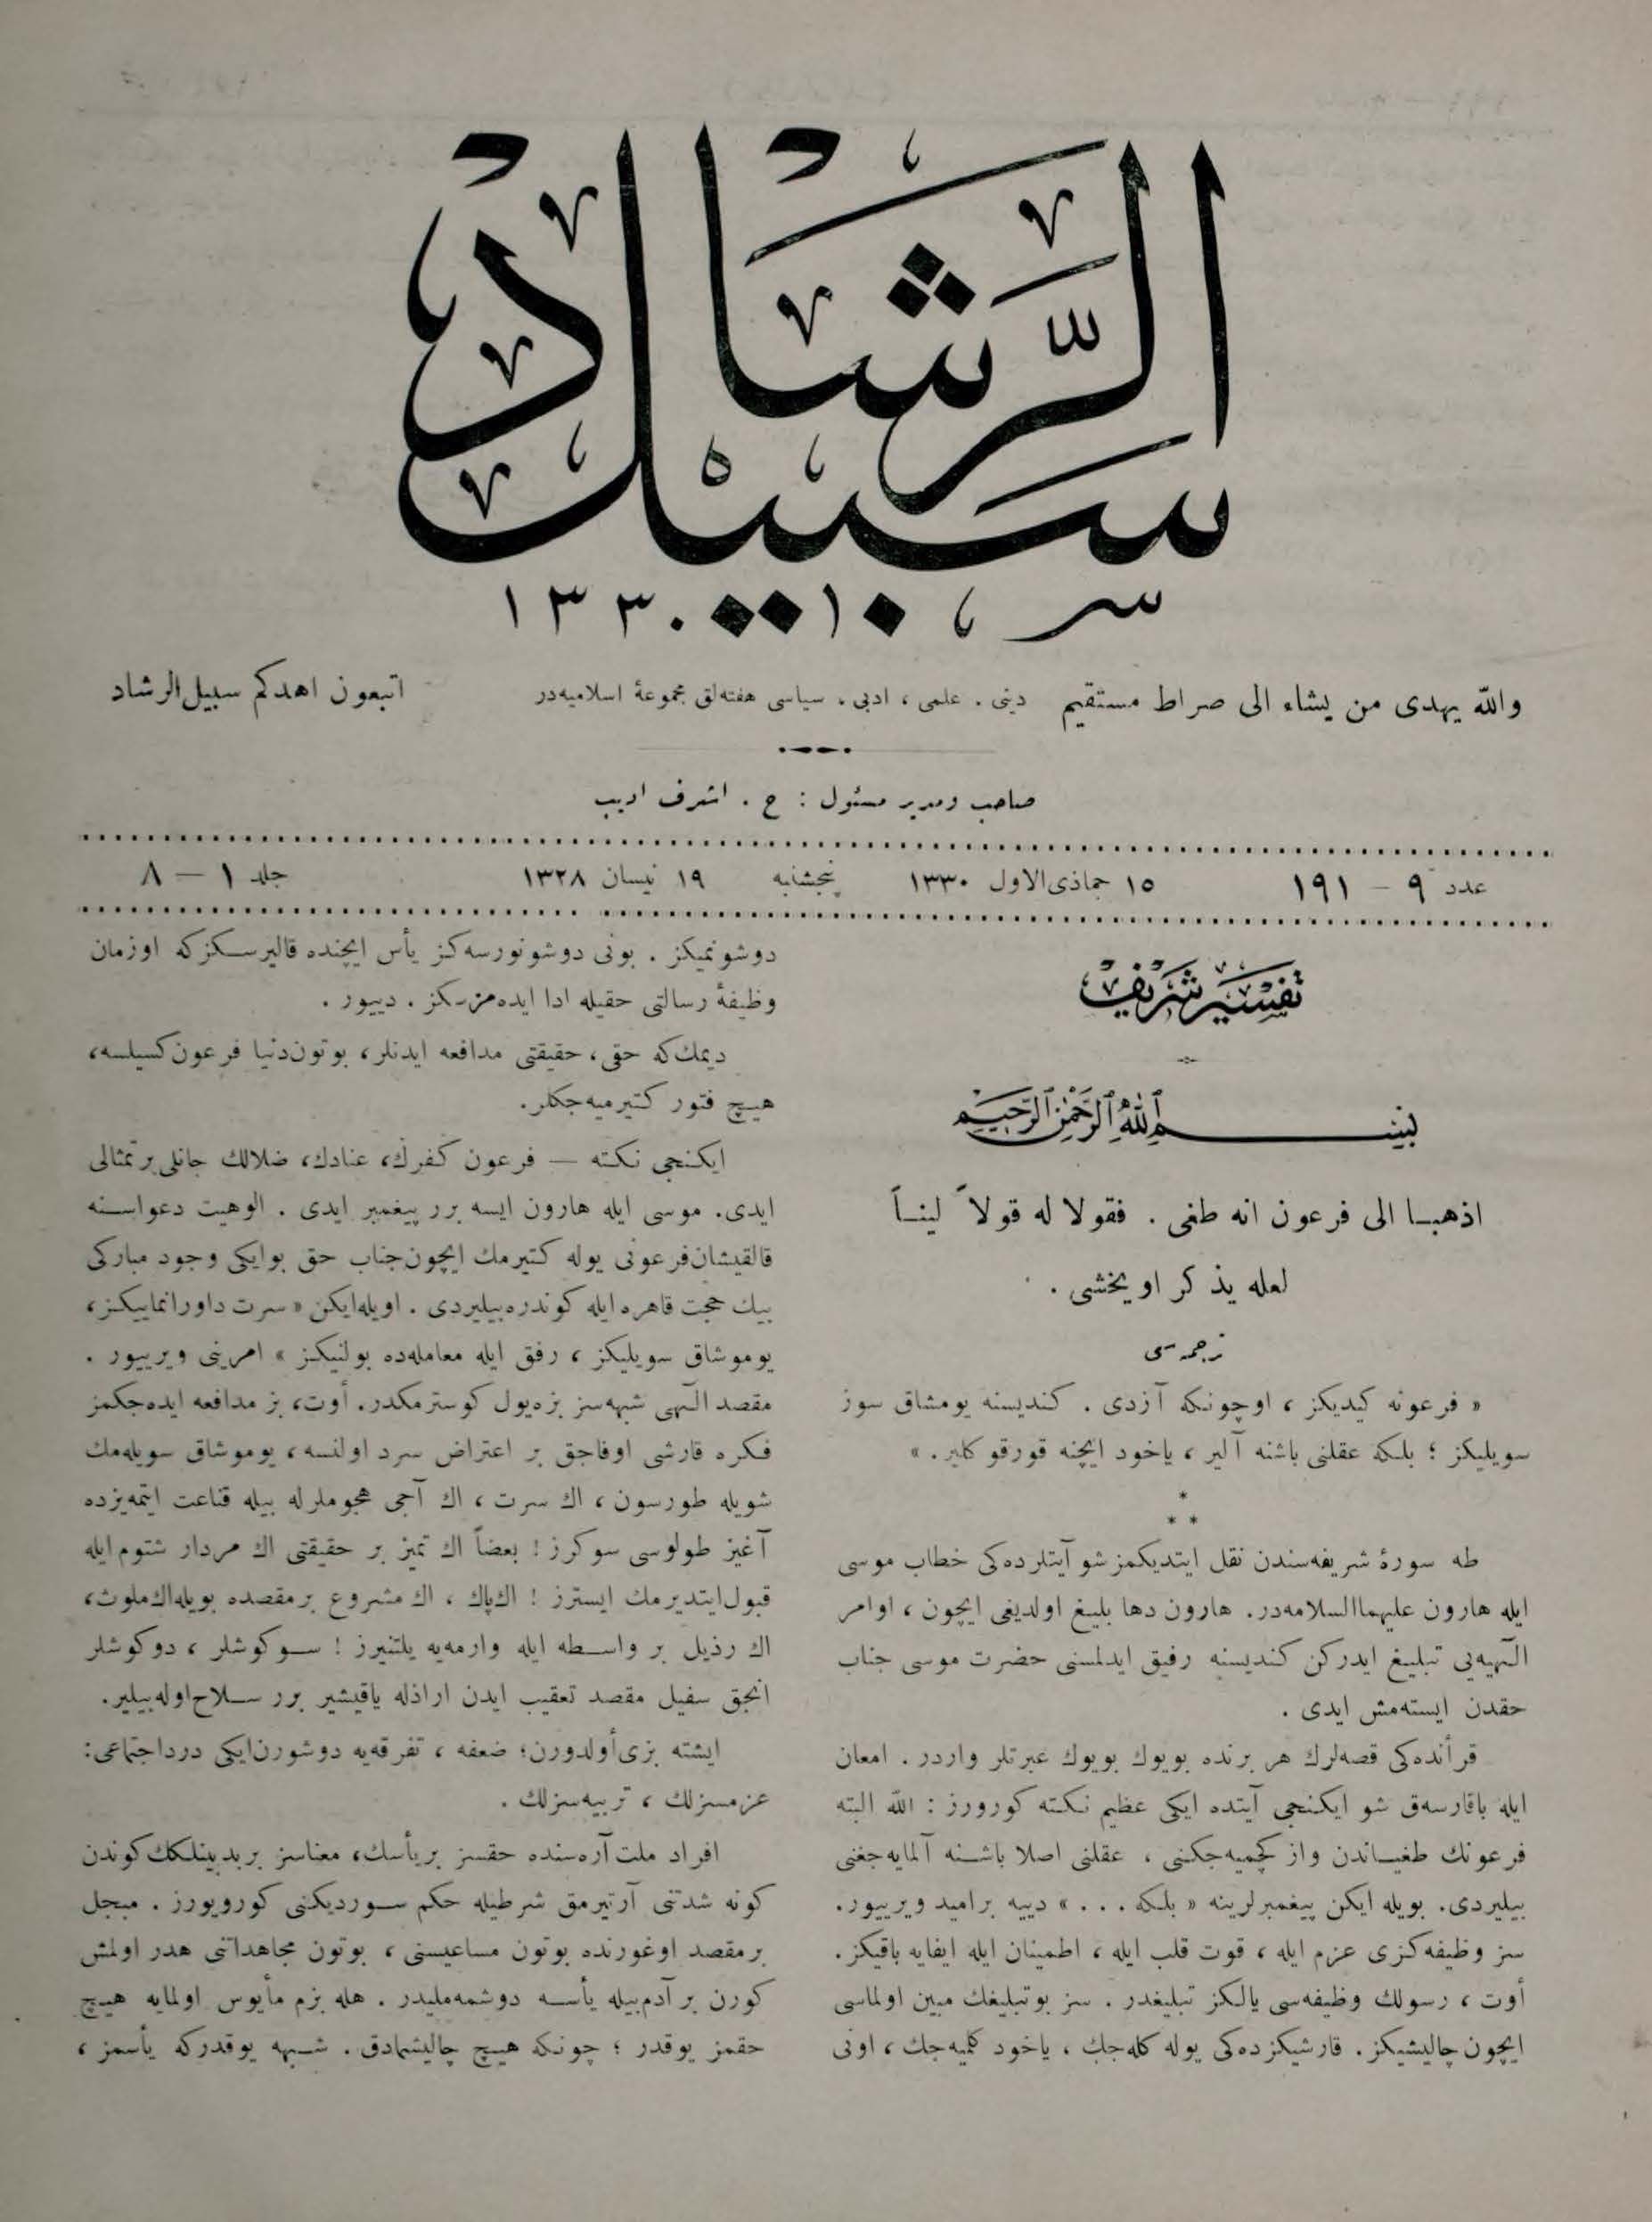 سبيل الرشاد
١٣٣٠
والله يهدى من يشاء الى صراط مستقيم
دينى ، علمى ، ادبى ، سياسى هفته‌لق مجموعۀ اسلاميه‌در
اتبعون اهدكم سبيل الرشاد
صاحب ومدير مسئول : ح . اشرف اديب
عدد ٩ – ١٩١
١٥ جماذى الاول ١٣٣٠
پنجشنبه
١٩ نيسان ١٣٢٨
جلد ١ – ٨
تفسير شريف
بسم الله الرحمن الرحيم
اذهبا الى فرعون انه طغى . فقولا له قولاً ليناً
لعله يذكر او يخشى .
ترجمه‌سى
« فرعونه كيديكز ، اوچونكه آزدى . كنديسنه يومشاق سوز
سويليكز ؛ بلكه عقلنى باشنه آلير ، ياخود ايچنه قورقو كلير . »
* * *
طه سورۀ شريفه‌سندن نقل ايتديكمز شو آيتلرده‌كى خطاب موسى
ايله هارون عليهماالسلامه‌در. هارون دها بليغ اولديغى ايچون ، اوامر
الٓهيه‌يى تبليغ ايدركن كنديسنه رفيق ايدلمسنى حضرت موسى جناب
حقدن ايسته‌مش ايدى .
قرأنده‌كى قصه‌لرك هر برنده بويوك بويوك عبرتلر واردر . امعان
ايله باقارسه‌ق شو ايكنجى آيتده ايكى عظيم نكته كورورز : الله البته
فرعونك طغياندن واز كچميه‌جكنى ، عقلنى اصلا باشنه آلمايه‌جغنى
بيليردى. بويله ايكن پيغمبرلرينه « بلكه . . . » دييه بر اميد ويرييور.
سز وظيفه‌كزى عزم ايله ، قوت قلب ايله ، اطمينان ايله ايفايه باقيكز.
أوت ، رسولك وظيفه‌سى يالكز تبليغدر . سز بو تبليغك مبين اولماسى
ايچون چاليشيكز. قارشيكزده‌كى يوله كله‌جك ، ياخود كلميه‌جك ، اونى
دوشونميكز . بونى دوشونورسه‌كز يأس ايچنده قاليرسكزكه اوزمان
وظيفۀ رسالتى حقيله ادا ايده‌مزسكز . دييور .
ديمك‌كه حقى ، حقيقتى مدافعه ايدنلر، بوتون دنيا فرعون كسيلسه،
هيچ فتور كتيرميه‌جكلر.
ايكنجى نكته — فرعون كفرك، عنادك، ضلالك جانلى بر تمثالى
ايدى. موسى ايله هارون ايسه برر پيغمبر ايدى . الوهيت دعواسنه
قالقيشان فرعونى يوله كتيرمك ايچون جناب حق بو ايكى وجود مباركى
بيك حجت قاهره ايله كوندره‌بيليردى . اويله ايكن « سرت داورانمايكز ،
يوموشاق سويليكز ، رفق ايله معامله‌ده بولنيكز » امرينى ويرييور .
مقصد الٓهى شبهه‌سز بزه يول كوسترمكدر. أوت، بز مدافعه ايده‌جكمز
فكره قارشى اوفاجق بر اعتراض سرد اولنسه ، يوموشاق سويله‌مك
شويله طورسون ، اك سرت ، اك آجى هجوملرله بيله قناعت ايتمه‌يزده
آغيز طولوسى سوكرز ! بعضاً اك تميز بر حقيقتى اك مردار شتوم ايله
قبول ايتديرمك ايسترز ! اك پاك ، اك مشروع بر مقصده بويله اك ملوث،
اك رذيل بر واسطه ايله وارمه‌يه يلتنيرز ! سوكوشلر ، دوكوشلر
انجق سفيل مقصد تعقيب ايدن اراذله ياقيشير برر سلاح اوله‌بيلير.
ايشته بزى أولدورن؛ ضعفه ، تفرقه‌يه دوشورن ايكى درد اجتماعى :
عزمسزلك ، تربيه‌سزلك .
افراد ملت آره‌سنده حقسز بر يأسك، معناسز بر بدبينلكك كوندن
كونه شدتنى آرتيرمق شرطيله حكم سورديكنى كورويورز . مبجل
بر مقصد اوغورنده بوتون مساعيسنى ، بوتون مجاهداتنى هدر اولمش
كورن بر آدم بيله يأسه دوشمه‌مليدر . هله بزم مأيوس اولمايه هيچ
حقمز يوقدر ؛ چونكه هيچ چاليشمادق. شبهه يوقدركه يأسمز ،